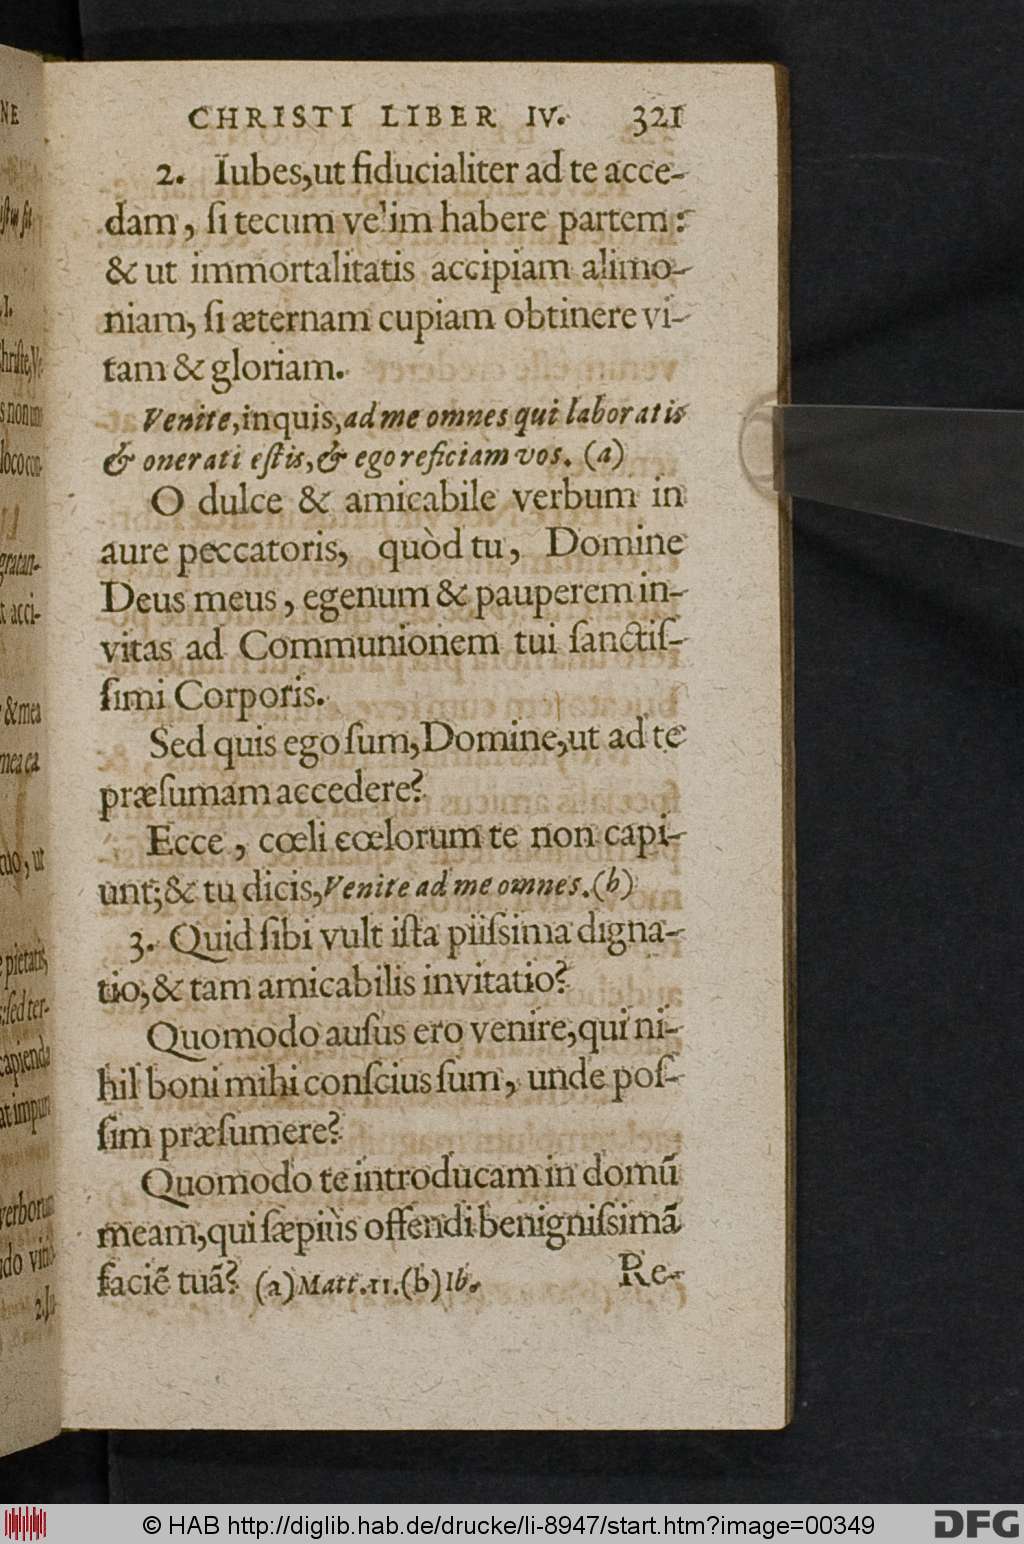 CHRISTI LIBER IV. 321
2. Iubes, ut fiducialiter ad te acce-
dam, ſi tecum velim habere partem:
& ut immortalitatis accipiam alimo-
niam, ſi æternam cupiam obtinere vi-
tam & gloriam.
Venite, inquis, ad me omnes qui laboratis
& onerati eſtis, & ego reficiam vos. (a)
O dulce & amicabile verbum in
aure peccatoris, quòd tu, Domine
Deus meus, egenum & pauperem in-
vitas ad Communionem tui ſanctiſ-
ſimi Corporis.
Sed quis ego ſum, Domine, ut ad te
præſumam accedere?
Ecce, cœli cœlorum te non capi-
unt; & tu dicis, Venite ad me omnes. (b)
3. Quid ſibi vult iſta piiſsima digna-
tio, & tam amicabilis invitatio?
Quomodo auſus ero venire, qui ni-
hil boni mihi conſcius ſum, unde poſ-
ſim præſumere?
Quomodo te introducam in domũ
meam, qui ſæpiùs offendi benigniſsimã
faciẽ tuã? (a) Matt. 11. (b) Ib. Re-
© HAB http://diglib.hab.de/drucke/li-8947/start.htm?image=00349
DFG